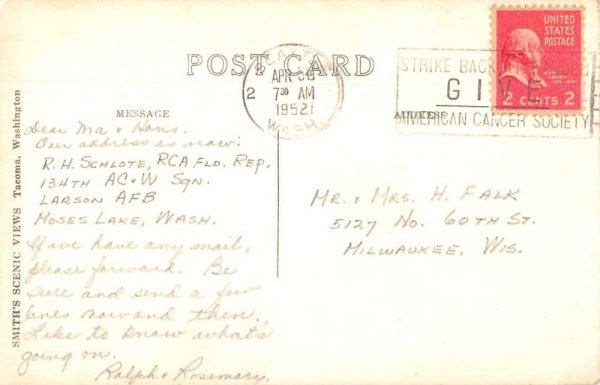 POST CARD
SEATTLE
APR 30
2 7 30 AM
1952
WASH.
STRIKE BACK
GIVE
AMERICAN CANCER SOCIETY
UNITED
STATES
POSTAGE
2 CENTS 2
MESSAGE
ADDRESS
Dear Ma & Hans,
Our address is now:
R. H. SCHLOTE, RCA FLD. REP.
134TH AC & W SQN.
LARSON AFB
MOSES LAKE, WASH.
If we have any mail,
please forward. Be
sure and send a few
lines now and then.
Like to know what's
going on.
Ralph & Rosemary.
MR. & MRS. H. FALK
5127 NO. 60TH ST.
MILWAUKEE, WIS.
SMITH'S SCENIC VIEWS Tacoma, Washington